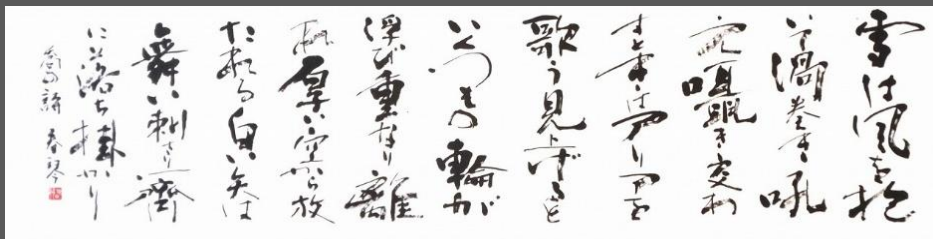 雪は風を抱
いて渦巻き吼
え囁き交わ
歌う見上げると
いくつもの輪が
浮び重なり離
れ厚い空から放
たれる白い矢は
舞い刺さり一斉
に落ち掛かり
の詩 春琴